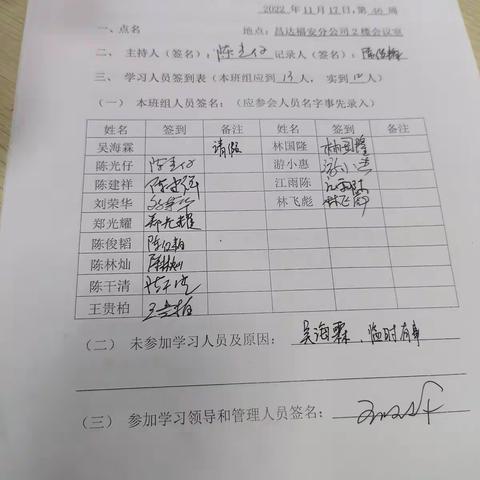 2022 年 11 月 17 日, 第 46 周
一、点名 地点: 昌达福安分公司2楼会议室
二、主持人（签名）: 陈光仔 记录人（签名）: 陈俊韬
三、学习人员签到表（本班组应到 13 人, 实到 12 人）
（一）本班组人员签名:（应参会人员名字事先录入）
姓名 签到 备注 姓名 签到 备注
吴海霖 请假 林国隆 林国隆
陈光仔 陈光仔 游小惠 游小惠
陈建祥 陈建祥 江雨陈 江雨陈
刘荣华 刘荣华 林飞彪 林飞彪
郑光耀 郑光耀
陈俊韬 陈俊韬
陈林灿 陈林灿
陈干清 陈干清
王贵柏 王贵柏
（二）未参加学习人员及原因: 吴海霖、临时有事
（三）参加学习领导和管理人员签名: